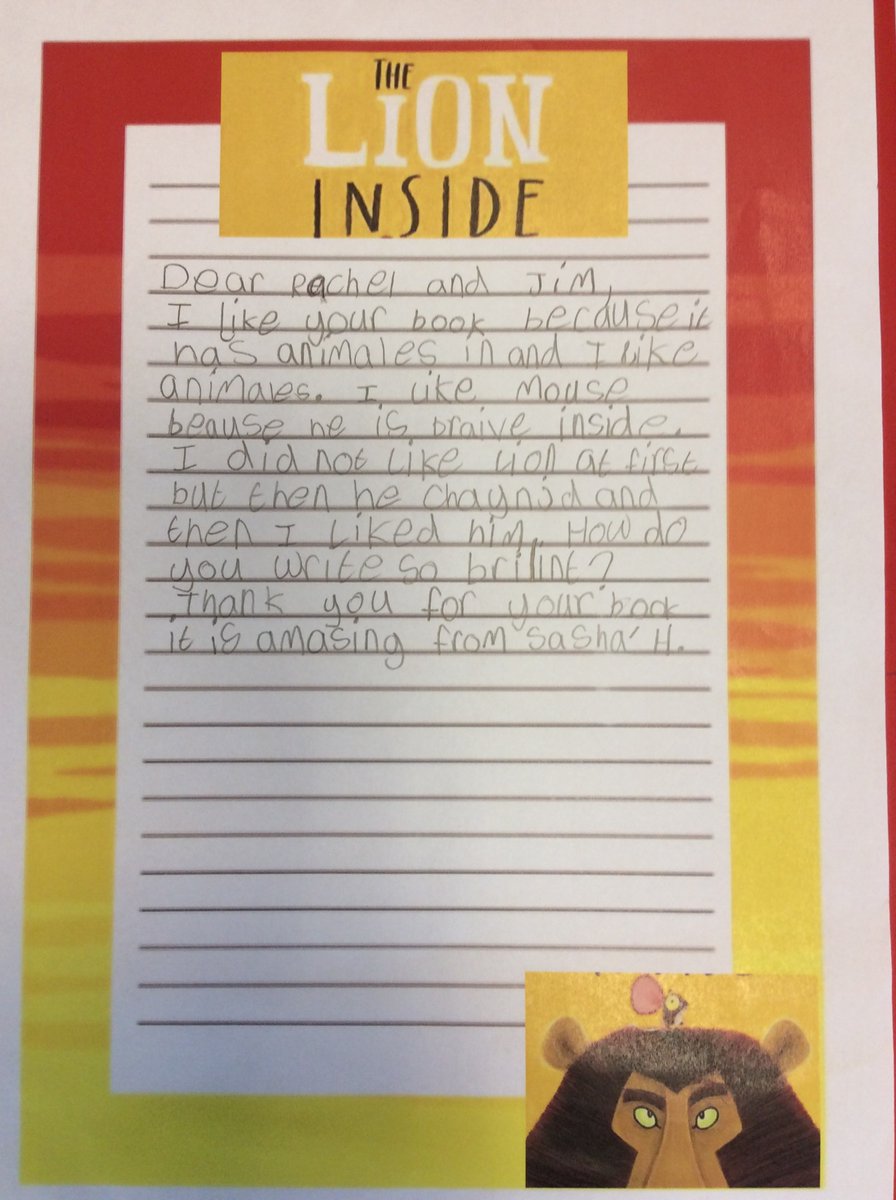 THE
LION
INSIDE
Dear Rachel and Jim,
I like your book because it
has animales in and I like
animales. I like Mouse
beause he is braive inside.
I did not like Lion at first
but then he chaynjd and
then I liked him. How do
you write so brilint?
Thank you for your book
it is amasing from Sasha H.